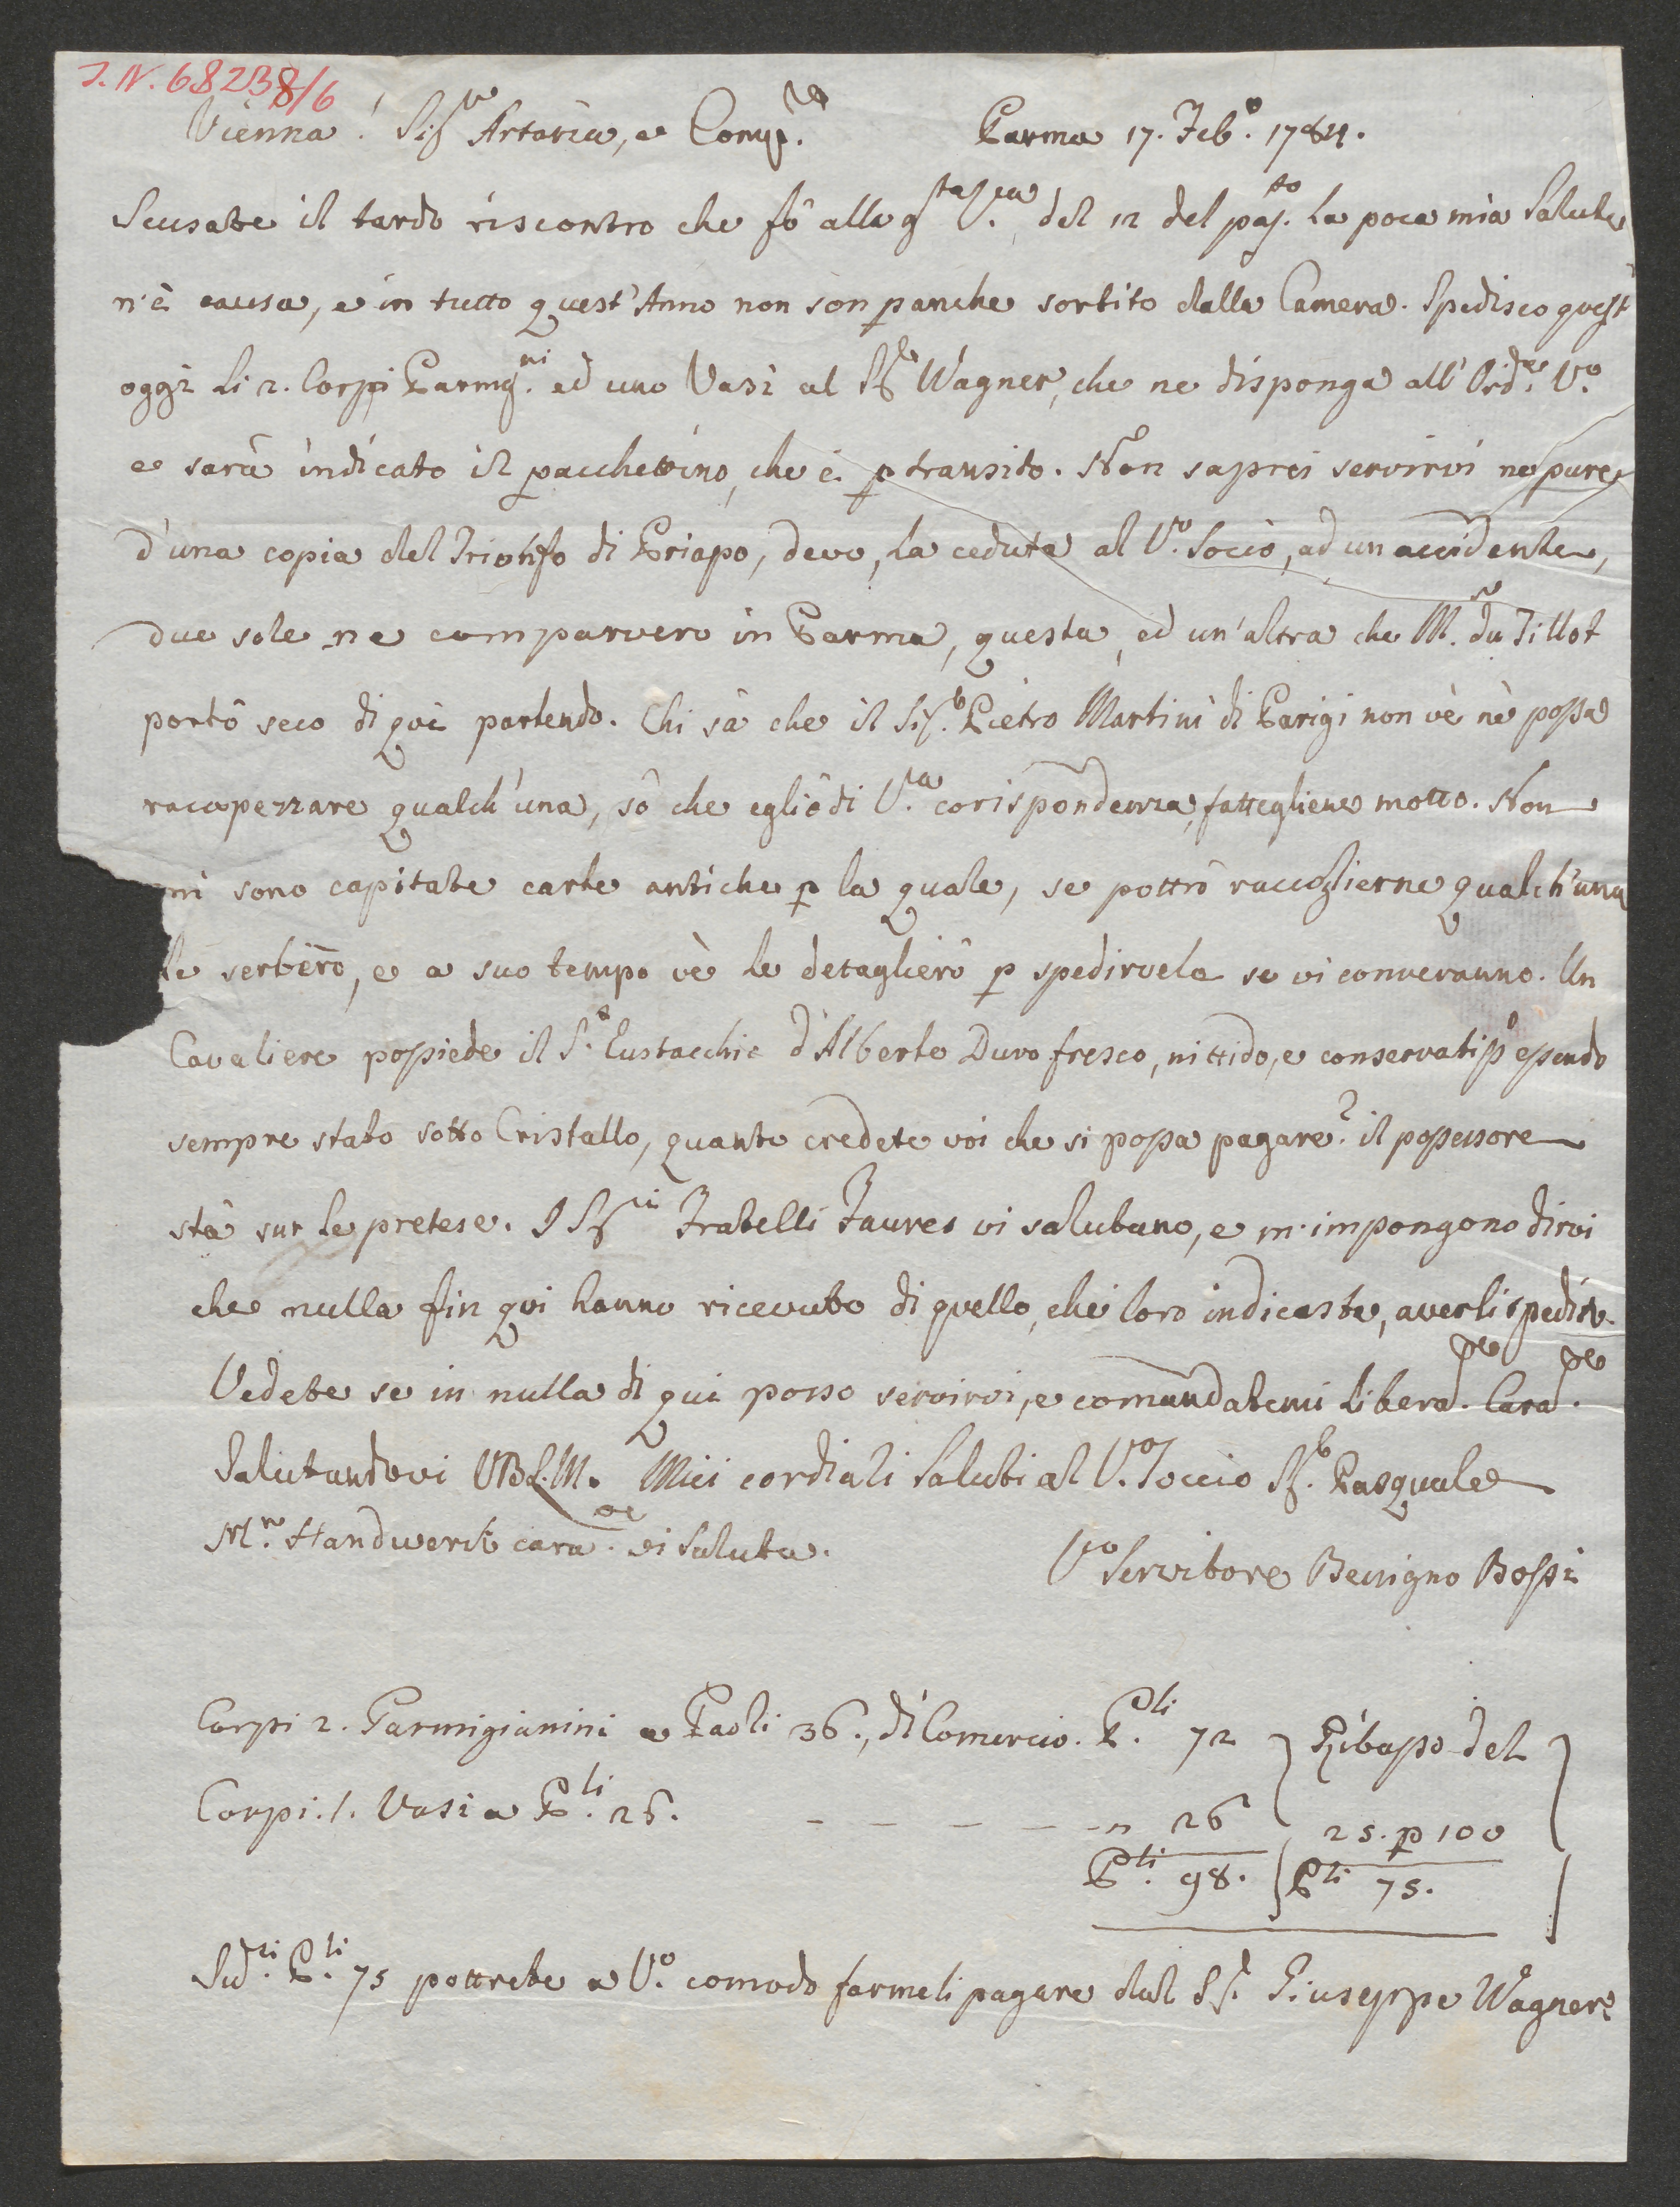 I.N. 68238/6
Vienna! Sig.re Artaria, e Comp.a Parma 17. Feb.o 1784.
Scusate il tardo riscontro che fò alla g.ta V.ra del 12 del pas.to La poca mia Salute
n'è causa, e in tutto quest'Anno non son panche sortito dalla Camera. Spedisco quest'
oggi li 2. Corpi Parmg.ni ed uno Vasi al Sig.r Wagner, che ne disponga all'Ord.e V.o
e sarà indicato il pacchettino, che è p transito. Non saprei servirvi ne pure
d'una copia del Trionfo di Priapo, devo, la ceduta al V.ro Socio, ad un accidente,
due sole ne comparvero in Parma, questa, ed un'altra che M.r du Tillot
portò seco di qui partendo. Chi sà che il Sig.r Pietro Martini di Parigi non vè nè possa
racapezzare qualch'una, sò che egli è di V.ra corispondenza, fattegliene motto. Non
mi sono capitate carte antiche p la quale, se pottrò raccoglierne qualch'una
le serberò, e a suo tempo vè le detaglierò p spedirvele se vi converanno. Un
Cavaliere possiede il S.t Eustacchio d'Alberto Duro fresco, nittido, e conservatiss.o essendo
sempre stato sotto Cristallo, quanto credete voi che si possa pagare? il possessore
stà sur le pretese. I Sig.ri Fratelli Faures vi salutano, e m'impongono dirvi
che nulla fin qui hanno ricevuto di quello, che loro indicaste, averli spedito.
Vedete se in nulla di qui posso servirvi, e comandatemi libera.te Cara.te
Salutandovi VBLM. Miei cordiali Saluti al V.ro Soccio Sig.r Pasquale
M.r Handwerck cara.te vi Saluta.
V.o Servitore Benigno Bossi
Corpi 2. Parmigianini a Paoli 36., di Comercio. P.li 72 } Ribasso del }
Corpi. 1. Vasi a P.li 26. - - - - - " 26 } 25. p 100 }
P.li 98. } P.li 75.
Sud.ti P.li 75 pottrete a V.o comodo farmeli pagare dal S.r Giuseppe Wagner